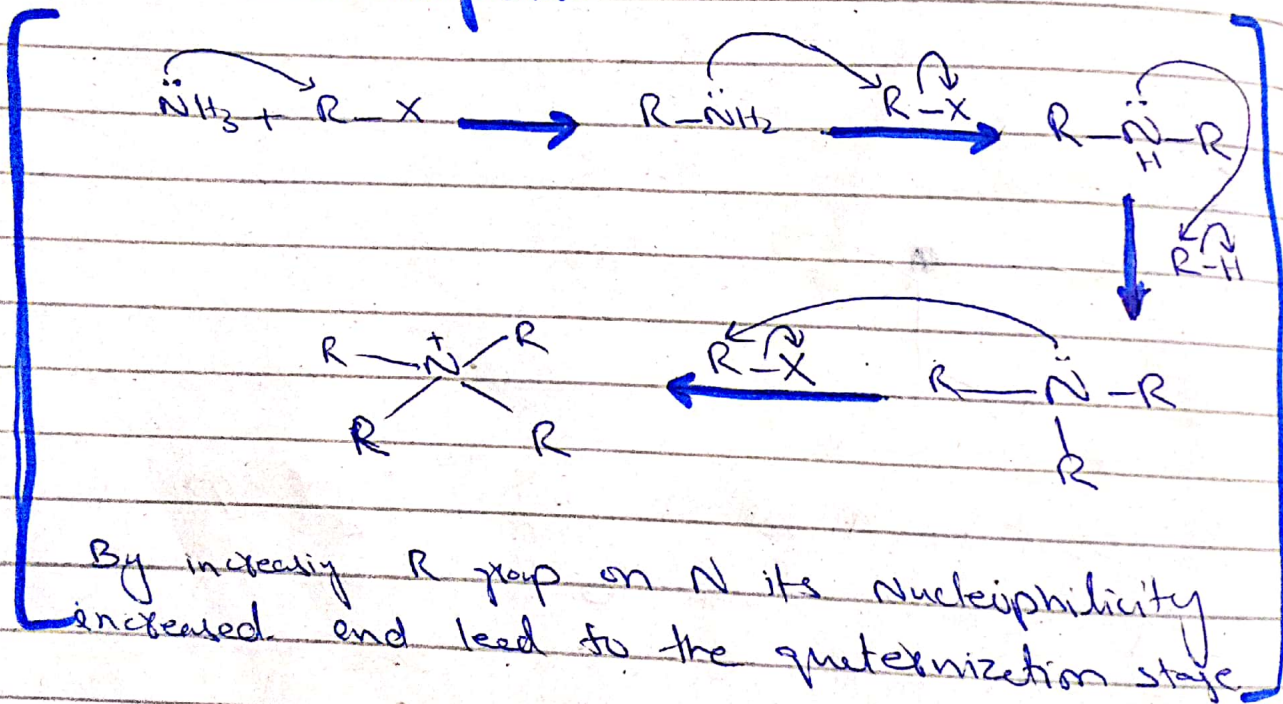 N̈H₃ + R–X R–N̈H₂ R–X R–N̈–R
H
R–H
R N⁺ R R–X R–N̈–R
R R R
By increasiy R group on N its Nucleophilicity
increased. end leed to the queternizetion staje